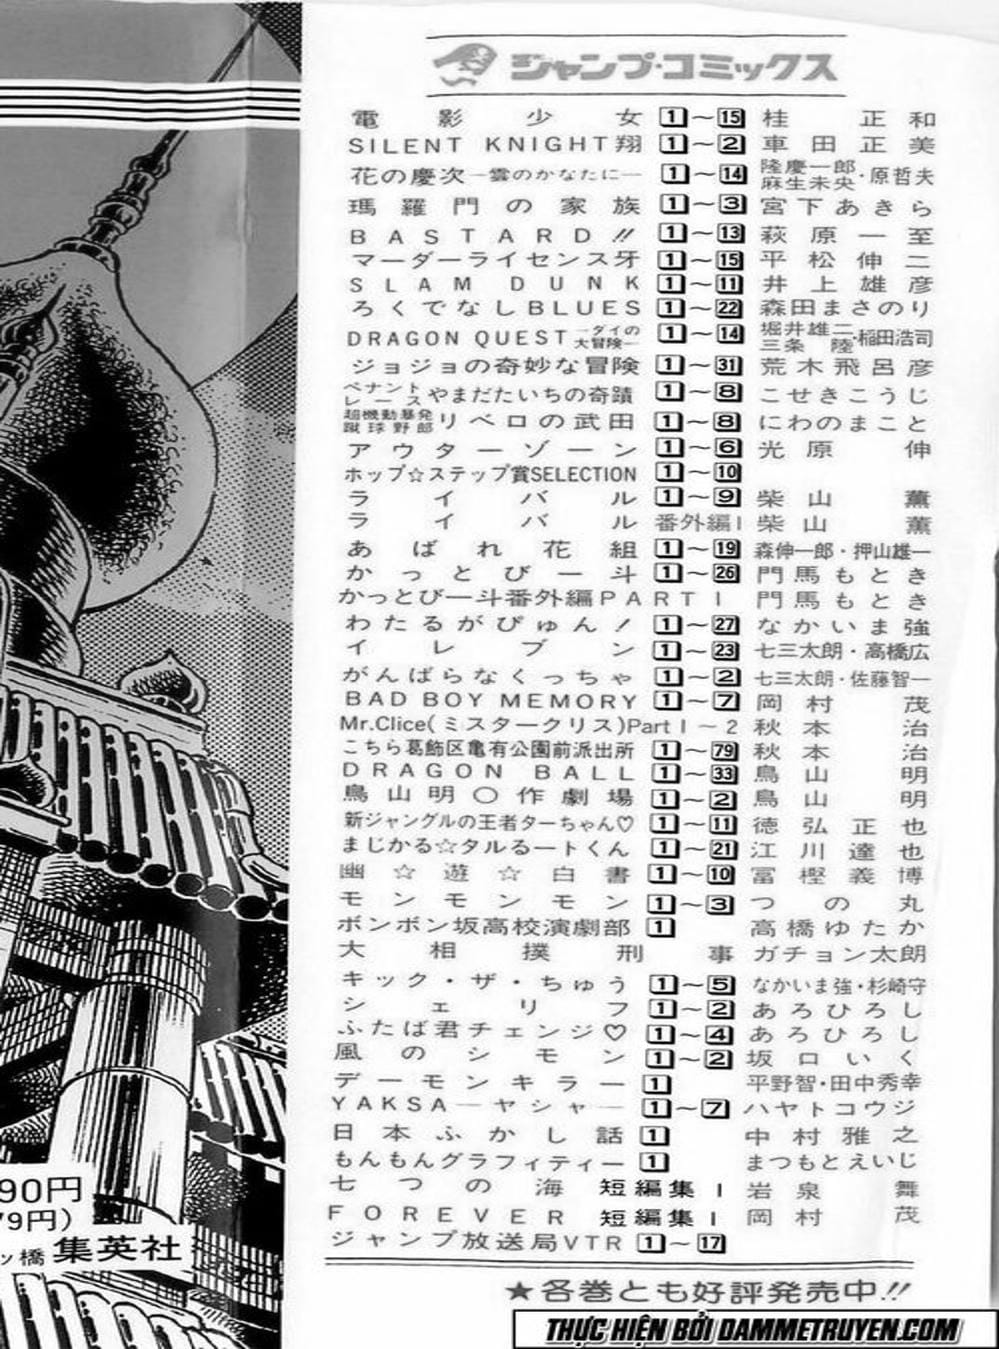 ジャンプ・コミックス
電影少女 1〜15 桂正和
SILENT KNIGHT翔 1〜2 車田正美
花の慶次―雲のかなたに― 1〜14 隆慶一郎 麻生未央・原哲夫
瑪羅門の家族 1〜3 宮下あきら
BASTARD!! 1〜13 萩原一至
マーダーライセンス牙 1〜15 平松伸二
SLAM DUNK 1〜11 井上雄彦
ろくでなしBLUES 1〜22 森田まさのり
DRAGON QUEST―ダイの大冒険― 1〜14 堀井雄二 三条陸・稲田浩司
ジョジョの奇妙な冒険 1〜31 荒木飛呂彦
ペナントレース やまだたいちの奇蹟 1〜8 こせきこうじ
超機動暴発蹴球野郎 リベロの武田 1〜8 にわのまこと
アウターゾーン 1〜6 光原伸
ホップ☆ステップ賞SELECTION 1〜10
ライバル 1〜9 柴山薫
ライバル 番外編1 柴山薫
あばれ花組 1〜19 森伸一郎・押山雄一
かっとび一斗 1〜26 門馬もとき
かっとび一斗番外編PART1 門馬もとき
わたるがぴゅん! 1〜27 なかいま強
イレブン 1〜23 七三太朗・高橋広
がんばらなくっちゃ 1〜2 七三太朗・佐藤智一
BAD BOY MEMORY 1〜7 岡村茂
Mr.Clice(ミスタークリス)Part1〜2 秋本治
こちら葛飾区亀有公園前派出所 1〜79 秋本治
DRAGON BALL 1〜33 鳥山明
鳥山明〇作劇場 1〜2 鳥山明
新ジャングルの王者ターちゃん♡ 1〜11 徳弘正也
まじかる☆タルるートくん 1〜21 江川達也
幽☆遊☆白書 1〜10 冨樫義博
モンモンモン 1〜3 つの丸
ボンボン坂高校演劇部 1 高橋ゆたか
大相撲刑事 ガチョン太朗
キック・ザ・ちゅう 1〜5 なかいま強・杉崎守
シェリフ 1〜2 あろひろし
ふたば君チェンジ♡ 1〜4 あろひろし
風のシモン 1〜2 坂口いく
デーモンキラー 1 平野智・田中秀幸
YAKSA―ヤシャ― 1〜7 ハヤトコウジ
日本ふかし話 1 中村雅之
もんもんグラフィティー 1 まつもとえいじ
七つの海 短編集1 岩泉舞
FOREVER 短編集1 岡村茂
ジャンプ放送局VTR 1〜17
★各巻とも好評発売中!!
90円
79円)
ツ橋 集英社
THỰC HIỆN BỞI DAMMETRUYEN.COM